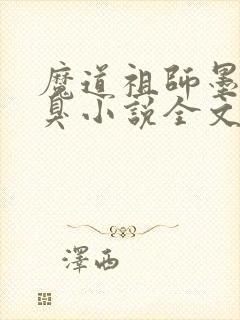 魔道祖師墨
臭小說全文
澤西